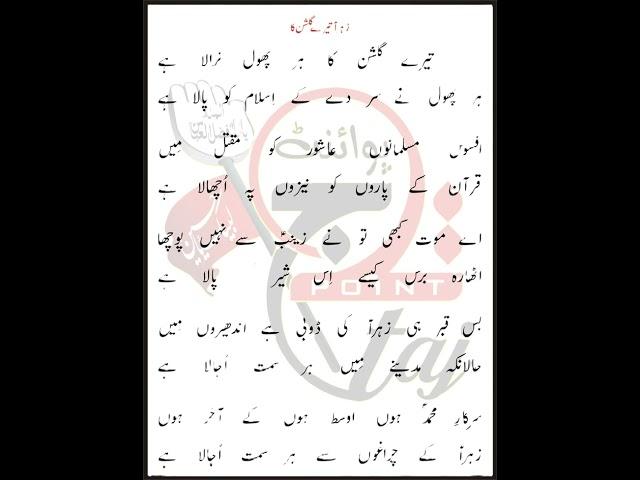 زہراؑ تیرے گلشن کا
تیرے گلشن کا ہر پھول نرالا ہے
ہر پھول نے سر دے کے اِسلام کو پالا ہے
افسوس مسلمانوں عاشور کو مقتل مِیں
قرآن کے پاروں کو نیزوں پہ اُچھالا ہے
اے موت کبھی تو نے زینبؑ سے نہیں پوچھا
اٹھارہ برس کیسے اِس شیر پالا ہے
بس قبر ہی زہراؑ کی ڈوبی ہے اندھیروں میں
حالانکہ مدینے مِیں ہر سمت اُجالا ہے
سرکارِ محمدؐ ہوں اوسط ہوں کے آخر ہوں
زہراؑ کے چراغوں سے ہر سمت اُجالا ہے
پوائنٹ
تاج
POINT
taj